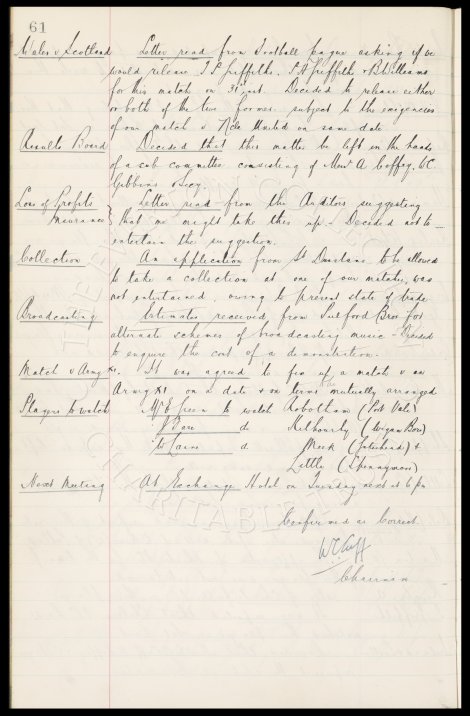 61
Wales v Scotland Letter read from Football League asking if we
would release T P Griffiths, P H Griffiths & B Williams
for this match on 31st inst. Decided to release either
or both of the two former subject to the exigencies
of our match v N'cle United on same date
Results Board Decided that this matter be left in the hands
of a sub committee consisting of Messrs A Coffey, W C
Gibbins & Secy.
Loss of Profits Letter read from the Auditors suggesting
Insurance } that we might take this up. Decided not to
entertain the suggestion.
Collection An application from St Dunstans to be allowed
to take a collection at one of our matches, was
not entertained, owing to present state of trade
Broadcasting Estimates received from Bros for
alternate schemes of broadcasting music - Decided
to enquire the cost of a demonstration.
Match v Army XI. It was agreed to fix up a match v an
Army XI on a date & on terms mutually arranged
Players to watch Mr E Green to watch Robotham (Port Vale)
do (Wigan Boro)
do Meek (Gateshead) &
Little (Spennymoor)
Next Meeting At Exchange Hotel on Tuesday next at 6 pm
Confirmed as Correct.
W C Cuff
Chairman
CHARITABLE